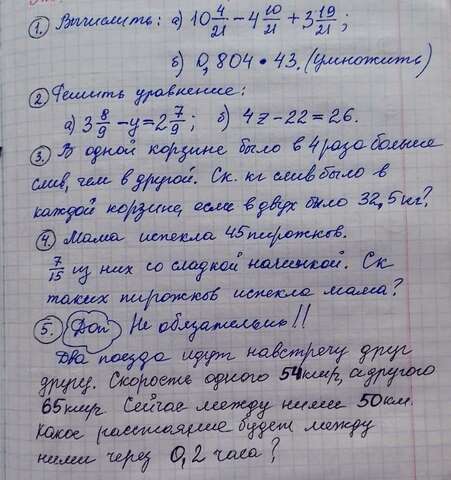 1. Вычислить: а) 10 4/21 − 4 10/21 + 3 19/21;
б) 0,804 • 43. (умножить)
2. Решить уравнение:
а) 3 8/9 − y = 2 7/9; б) 4z − 22 = 26.
3. В одной корзине было в 4 раза больше
слив, чем в другой. Ск. кг слив было в
каждой корзине, если в двух было 32,5 кг?
4. Мама испекла 45 пирожков.
7/15 из них со сладкой начинкой. Ск
таких пирожков испекла мама?
5. Доп Не обязательно!!
Два поезда идут навстречу друг
другу. Скорость одного 54 км/ч, а другого
65 км/ч. Сейчас между ними 50 км.
Какое расстояние будет между
ними через 0,2 часа?